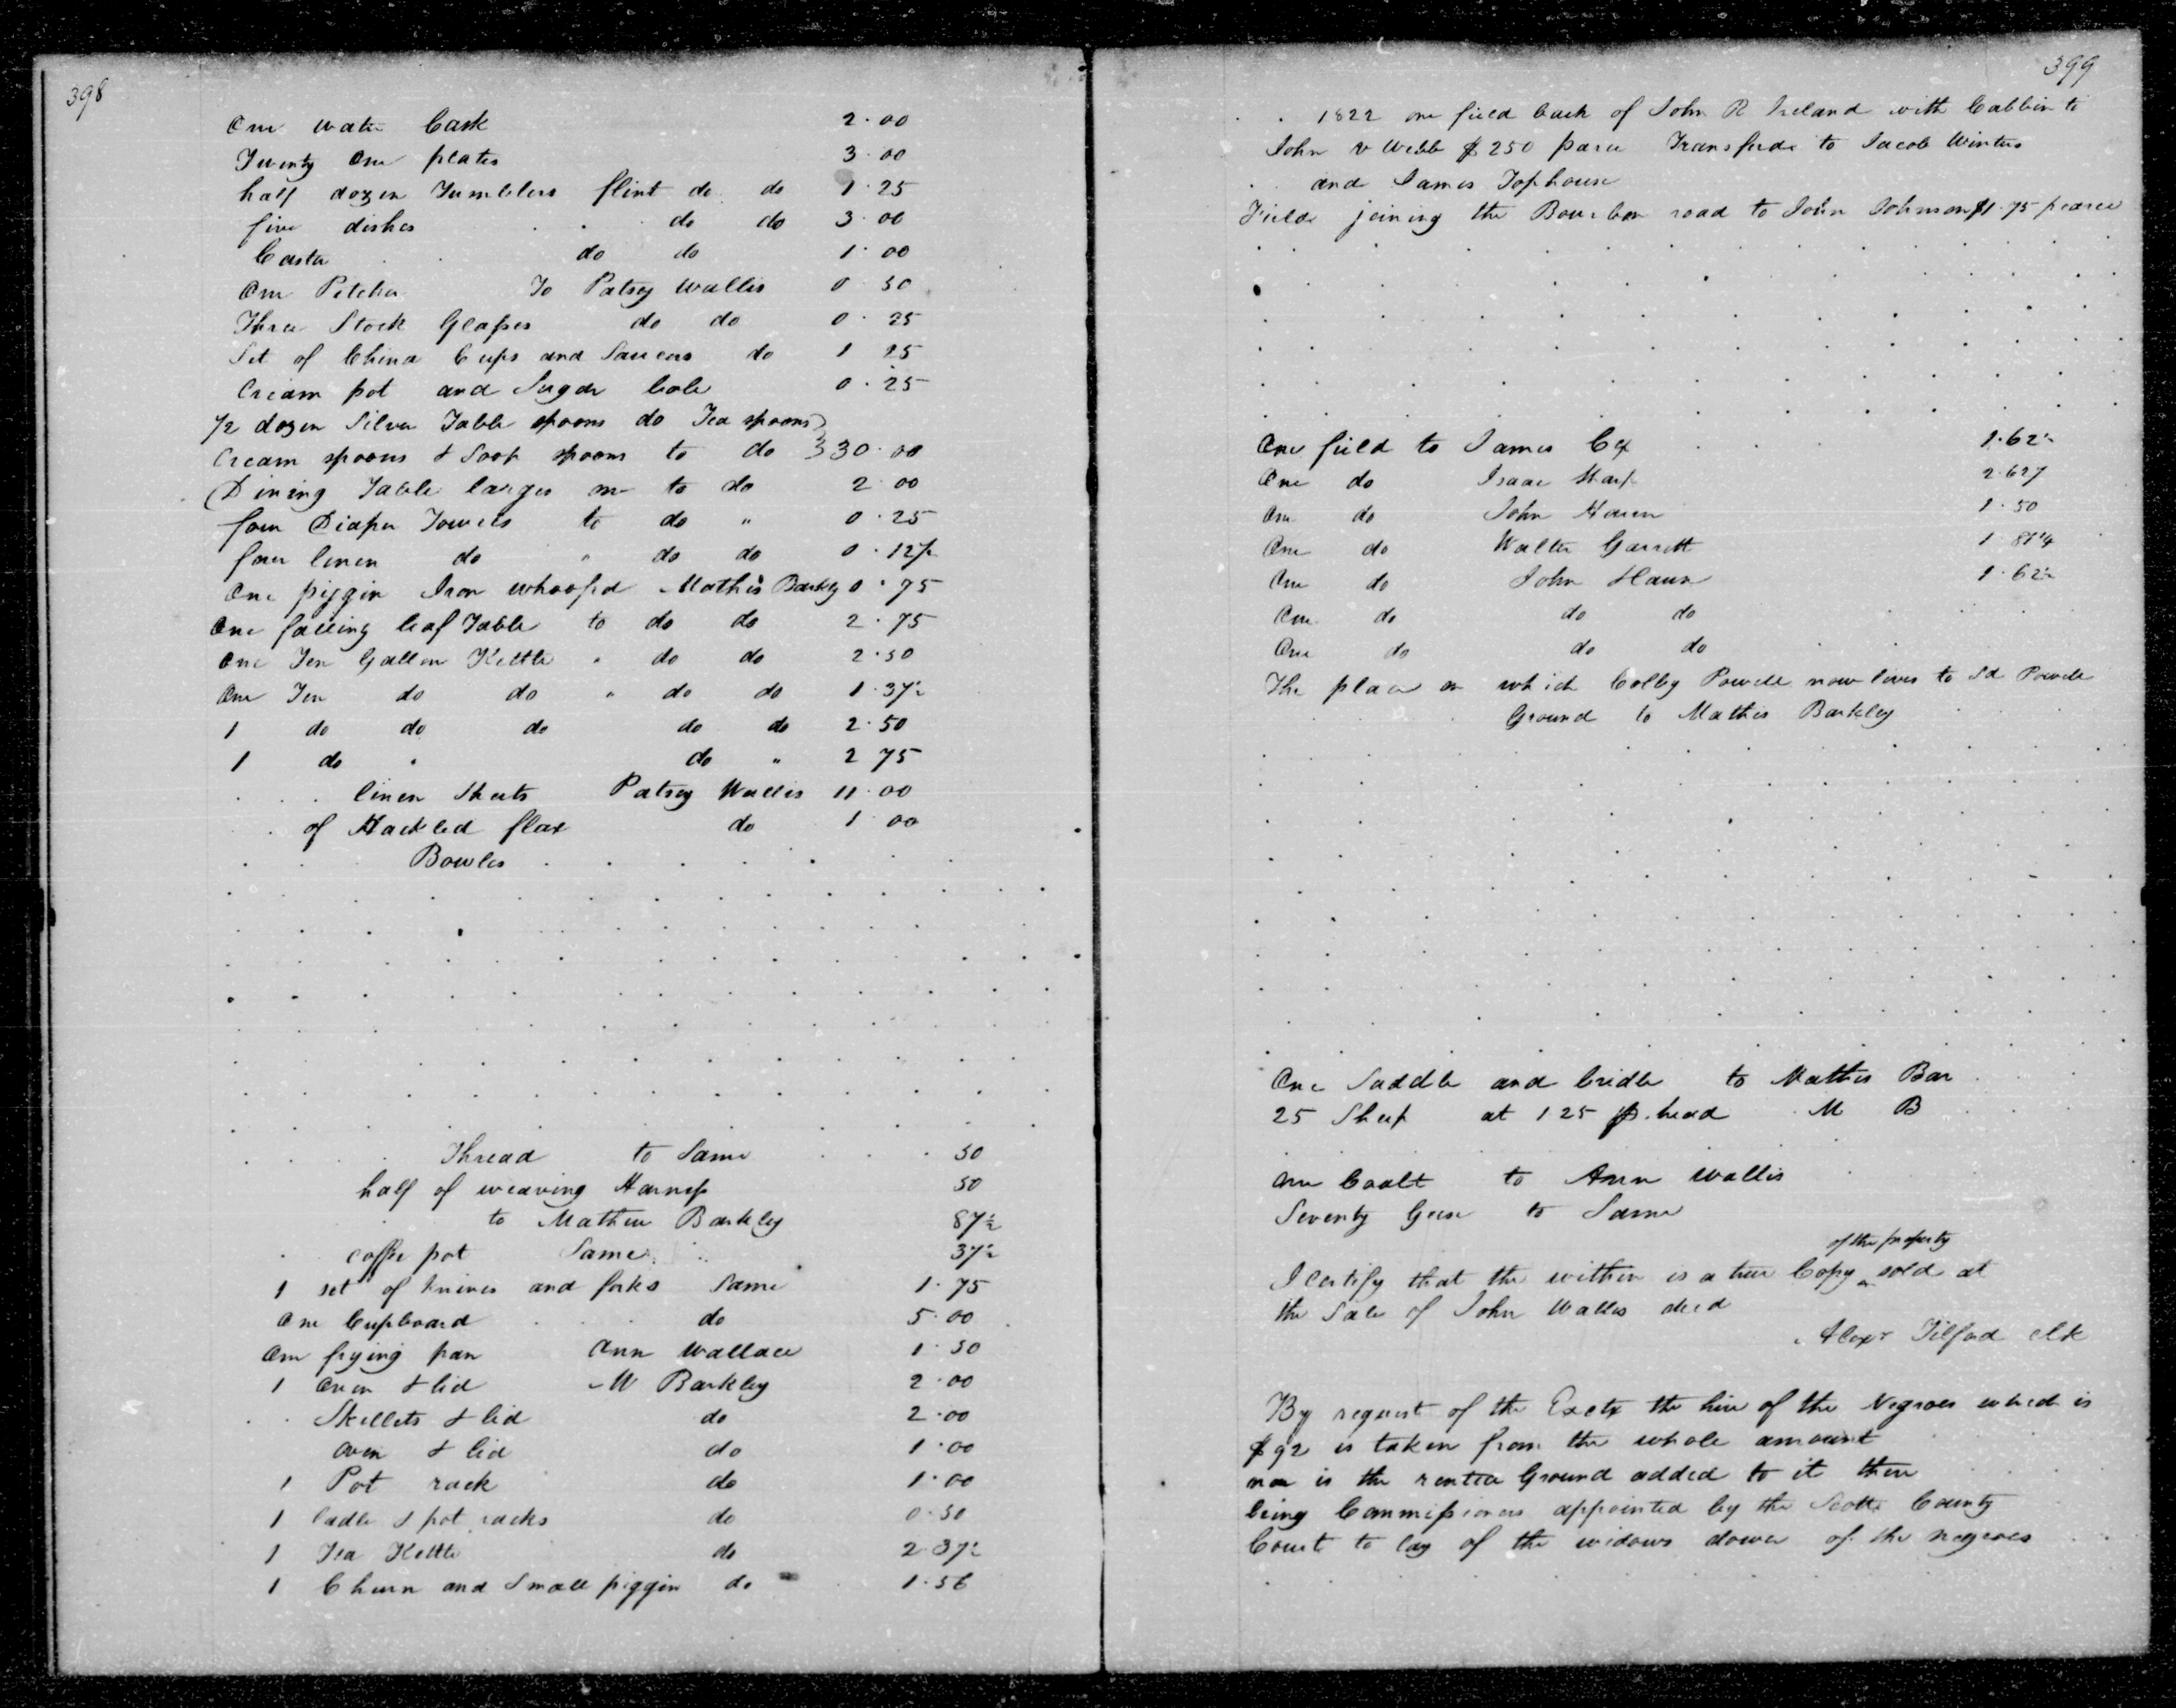 398
One water Cask 2.00
Twenty One plates 3.00
half dozen Tumblers flint do. do 1.25
five dishes do do 3.00
Caster do do 1.00
One Pitcher To Patsey Wallis 0 50
Three Stock Glasses do do 0.25
Set of China Cups and Saucers do 1 25
Cream pot and Sugar bole 0.25
1/2 dozen Silver Table spoons do Tea spoons
Cream spoons & Soop spoons to do 30.00
Dining Table larges to do 2.00
four Diaper Towels to do " 0.25
four linen do " do do 0.12 1/2
One piggin Iron whoofed Mathis Barkley 0.75
One falling leaf Table to do do 2.75
One Ten Gallon Kettle " do do 2.50
One Ten do do " do do 1.37 1/2
1 do do do do do 2.50
1 do " do " 2 75
linen Sheets Patsey Wallis 11.00
of Hackled flax do 1 00
Bowles
Thread to Same 50
half of weaving Harness 50
to Mathew Barkley 87 1/2
coffee pot Same 37 1/2
1 set of knives and forks Same 1.75
One Cupboard do 5.00
One frying pan Ann Wallace 1.50
1 Oven & lid M Barkley 2.00
Skillets & lid do 2.00
Oven & lid do 1.00
1 Pot rack do 1.00
1 ladle & pot racks do 0.50
1 Tea Kettle do 2.37 1/2
1 Churn and Small piggin do 1.56
399
1822 one field back of John R Ireland with Cabbin to
John V Webb $ 250 Transferd to Jacob Winters
and James Tophouse
Field joining the Bourbon road to John Johnson $1.75
One field to James Cox 1.62 1/2
One do Isaac Sharp 2.62
One do John Haun 1.50
One do Walter Garrett 1 81 1/4
One do John Haun 1.62 1/2
One do do do
One do do do
The place on which Colby Powell now lives to Sd Powell
Ground to Mathis Barkley
One Saddle and bridle to Mathis Bar
25 Sheep at 1 25 p. head M B
One Coalt to Ann Wallis
Seventy Geese to Same
of the property
I certify that the within is a true Copy ^ sold at
the Sale of John Wallis decd
Alexr Tilford clk
By request of the Exctx the hire of the Negroes which is
$92 is taken from the whole amount
nor is the rented Ground added to it there
being Commissioners appointed by the Scott County
Court to lay of the widows dower of the negroes